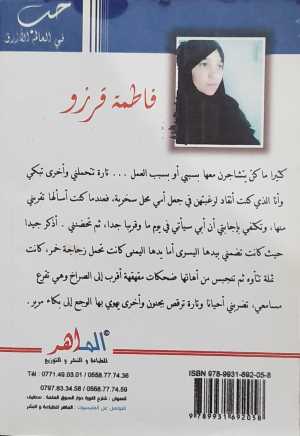 حب
في العالم الأزرق
فاطمة قرزو
كثيرا ما كن يتشاجرن معها بسببي أو بسبب العمل ... تارة تتحملني وأخرى تبكي
وأنا الذي كنت أنقاد لرغبتهن في جعل أمي محل سخرية، فعندما كنت أسألها تقربني
منها، وتكتفي بإجابتي أن أبي سيأتي في يوم ما وقريبا جدا، ثم تحضنني . أذكر جيدا
حيث كانت تضمني بيدها اليسرى أما يدها اليمنى كانت تحمل زجاجة خمر، كانت
ثملة تتأوه ثم تنبجس من آهاتها ضحكات مقهقهة أقرب إلى الصراخ وهي تقرع
مسامعي، تضربني أحيانا وتارة ترقص بجنون وأخرى يهوي بها الوجع إلى بكاء مرير.
الماهر
للطباعة و النشر و التوزيع
Tél : 0771.49.03.01 / 0558.77.74.36
0797.83.34.58 / 0558.77.74.59
ISBN 978-9931-692-05-8
9 789931 692058